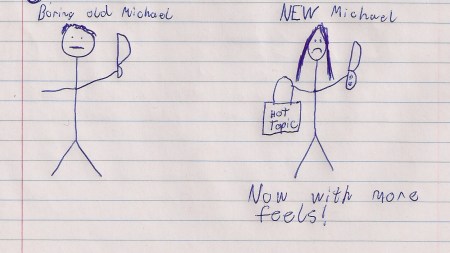 Boring old Michael
NEW Michael
Hot
Topic
Now with more
feels!